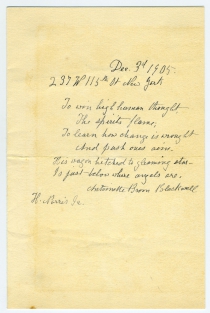 Dec. 3d 1905.
237 W 113th St New York
To won high human thought,
The spirits flame,
To learn how change is wrought
And push ones aim.
His wagon hitched to gleaming star
Is just below where angels are.
Antoinette Brown Blackwell
H. Norris Jr.